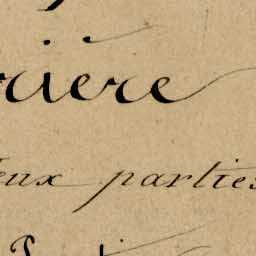 rière
eux parties